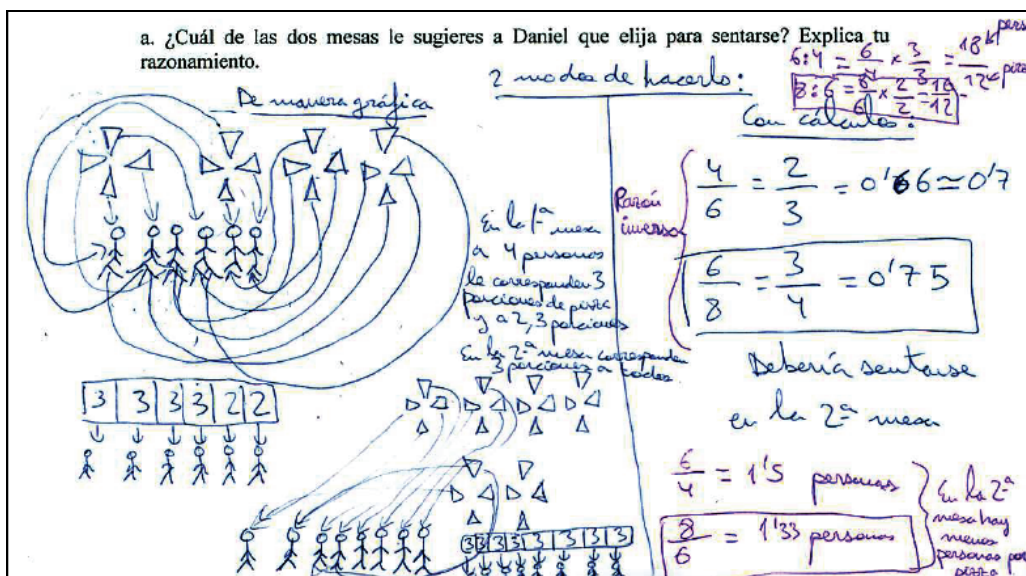 a. ¿Cuál de las dos mesas le sugieres a Daniel que elija para sentarse? Explica tu
razonamiento.
2 modos de hacerlo:
De manera gráfica
En la 1ª mesa
a 4 personas
le corresponden 3
porciones de pizza
y a 2, 3 porciones
En la 2ª mesa corresponden
3 porciones a todos
3 3 3 3 2 2
3 3 3 3 3 3 3 3
6:4 = 6/4 x 3/3 = 18/12
8:6 = 8/6 x 2/2 = 16/12
Con cálculos:
Razón
inversa
4/6 = 2/3 = 0'66 ≃ 0'7
6/8 = 3/4 = 0'75
Debería sentarse
en la 2ª mesa
6/4 = 1'5 personas
8/6 = 1'33 personas
En la 2ª
mesa hay
menos
personas por
pizza